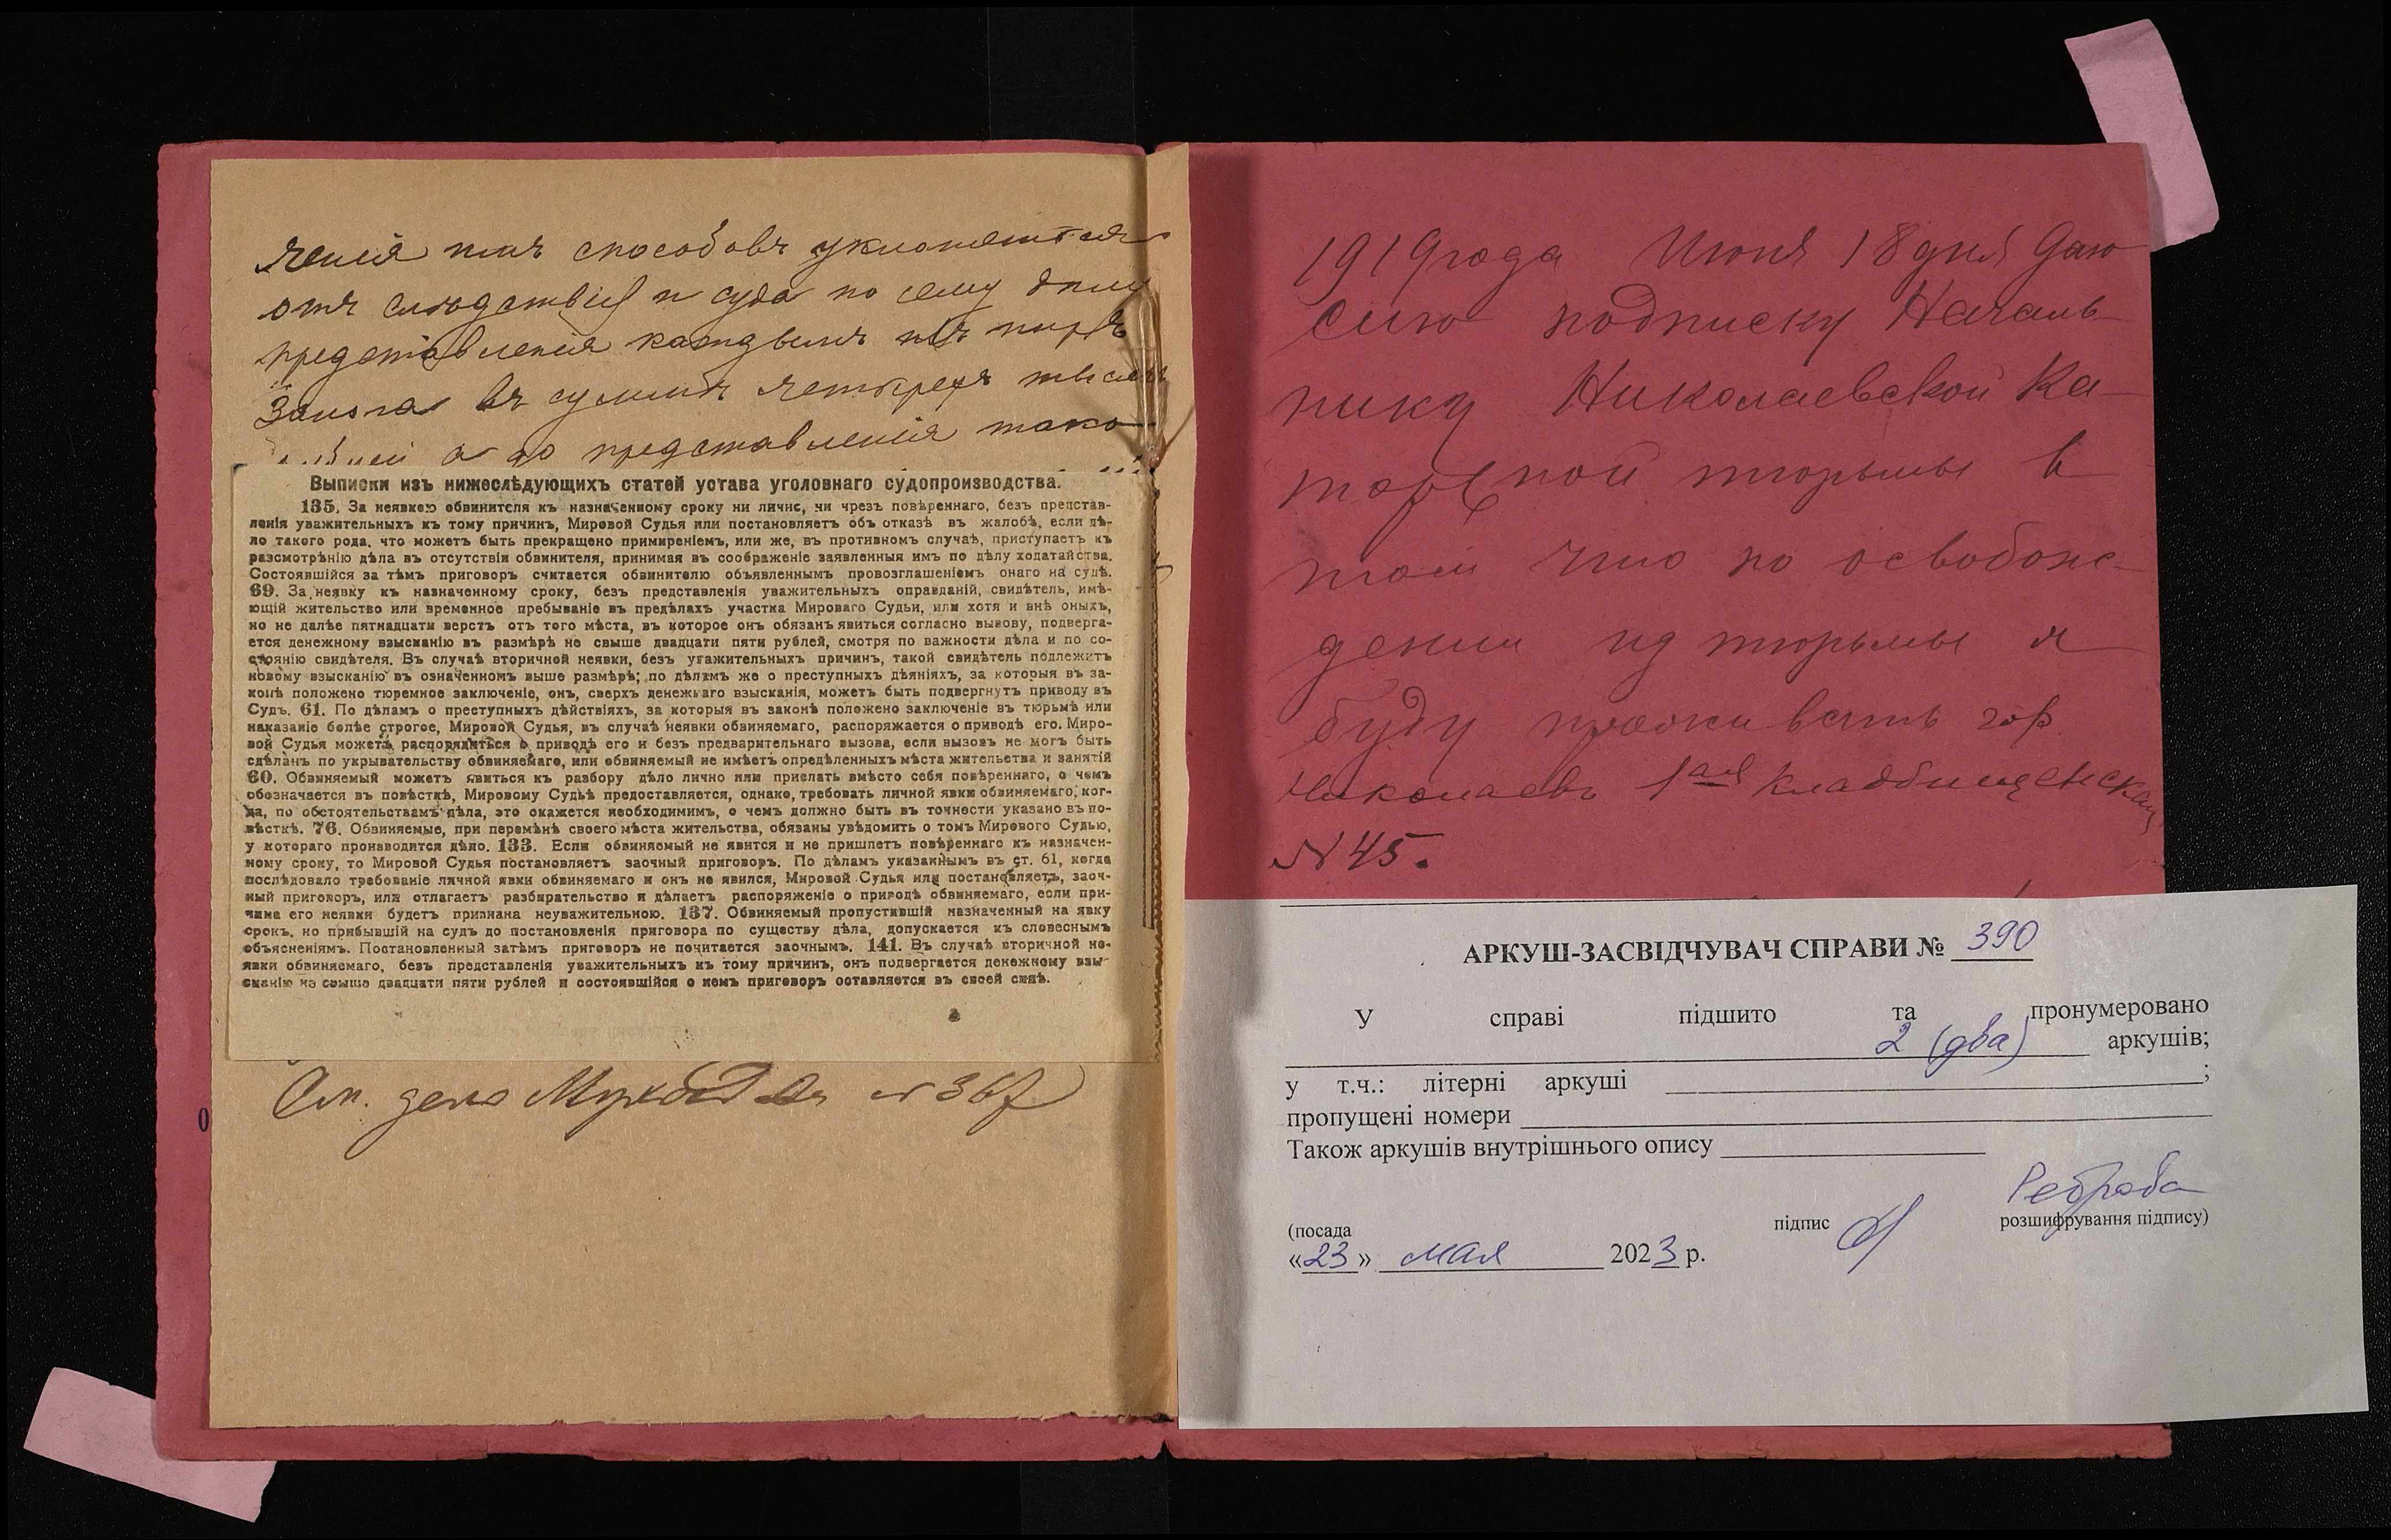 ченія имъ способовъ уклоняться
отъ слѣдствія и суда по сему дѣлу
представленія каждымъ изъ нихъ
Залога въ суммѣ четырехъ тысячъ
а до представленія тако
Выписки изъ нижеслѣдующихъ статей устава уголовнаго судопроизводства.
135. За неявкою обвинителя къ назначенному сроку ни лично, ни чрезъ повѣреннаго, безъ представ-
ленія уважительныхъ къ тому причинъ, Мировой Судья или постановляетъ объ отказѣ въ жалобѣ, если дѣ-
ло такого рода, что можетъ быть прекращено примиреніемъ, или же, въ противномъ случаѣ, приступаетъ къ
разсмотрѣнію дѣла въ отсутствіи обвинителя, принимая въ соображеніе заявленныя имъ по дѣлу ходатайства.
Состоявшійся за тѣмъ приговоръ считается обвинителю объявленнымъ провозглашеніемъ онаго на судѣ.
69. За неявку къ назначенному сроку, безъ представленія уважительныхъ оправданій, свидѣтель, имѣ-
ющій жительство или временное пребываніе въ предѣлахъ участка Мироваго Судьи, или хотя и внѣ оныхъ,
но не далѣе пятнадцати верстъ отъ того мѣста, въ которое онъ обязанъ явиться согласно вызову, подверга-
ется денежному взысканію въ размѣрѣ не свыше двадцати пяти рублей, смотря по важности дѣла и по со-
стоянію свидѣтеля. Въ случаѣ вторичной неявки, безъ уважительныхъ причинъ, такой свидѣтель подлежитъ
новому взысканію въ означенномъ выше размѣрѣ; по дѣламъ же о преступныхъ дѣяніяхъ, за которыя въ за-
конѣ положено тюремное заключеніе, онъ, сверхъ денежнаго взысканія, можетъ быть подвергнутъ приводу въ
Судъ. 61. По дѣламъ о преступныхъ дѣйствіяхъ, за которыя въ законѣ положено заключеніе въ тюрьмѣ или
наказаніе болѣе строгое, Мировой Судья, въ случаѣ неявки обвиняемаго, распоряжается о приводѣ его. Миро-
вой Судья можетъ распорядиться о приводѣ его и безъ предварительнаго вызова, если вызовъ не могъ быть
сдѣланъ по укрывательству обвиняемаго, или обвиняемый не имѣетъ опредѣленныхъ мѣста жительства и занятій
60. Обвиняемый можетъ явиться къ разбору дѣло лично или прислать вмѣсто себя повѣреннаго, о чемъ
обозначается въ повѣсткѣ, Мировому Судьѣ предоставляется, однако, требовать личной явки обвиняемаго, ког-
да, по обстоятельствамъ дѣла, это окажется необходимымъ, о чемъ должно быть въ точности указано въ по-
вѣсткѣ. 76. Обвиняемые, при перемѣнѣ своего мѣста жительства, обязаны увѣдомить о томъ Мирового Судью,
у котораго производится дѣло. 133. Если обвиняемый не явится и не пришлетъ повѣреннаго къ назначен-
ному сроку, то Мировой Судья постановляетъ заочный приговоръ. По дѣламъ указаннымъ въ ст. 61, когда
послѣдовало требованіе личной явки обвиняемаго и онъ не явился, Мировой Судья или постановляетъ, заоч-
ный приговоръ, или отлагаетъ разбирательство и дѣлаетъ распоряженіе о приводѣ обвиняемаго, если при-
чина его неявки будетъ признана неуважительною. 137. Обвиняемый пропустившій назначенный на явку
срокъ, но прибывшій на судъ до постановленія приговора по существу дѣла, допускается къ словеснымъ
объясненіямъ. Постановленный затѣмъ приговоръ не почитается заочнымъ. 141. Въ случаѣ вторичной не-
явки обвиняемаго, безъ представленія уважительныхъ къ тому причинъ, онъ подвергается денежному взы-
сканію не свыше двадцати пяти рублей и состоявшійся о немъ приговоръ оставляется въ своей силѣ.
См. дело № 367
1919 года Июня 18 дня Даю
сию подписку Началь-
нику Николаевской Ка-
торжной тюрьмы в
том что по освобож-
дении из тюрьмы я
буду проживать гор
Николаевъ 1ая Кладбищенская
N 45.
АРКУШ-ЗАСВІДЧУВАЧ СПРАВИ № 390
У справі підшито та пронумеровано
2 (два) аркушів;
у т.ч.: літерні аркуші ;
пропущені номери
Також аркушів внутрішнього опису
Реброва
(посада підпис розшифрування підпису)
«23» мая 2023 р.